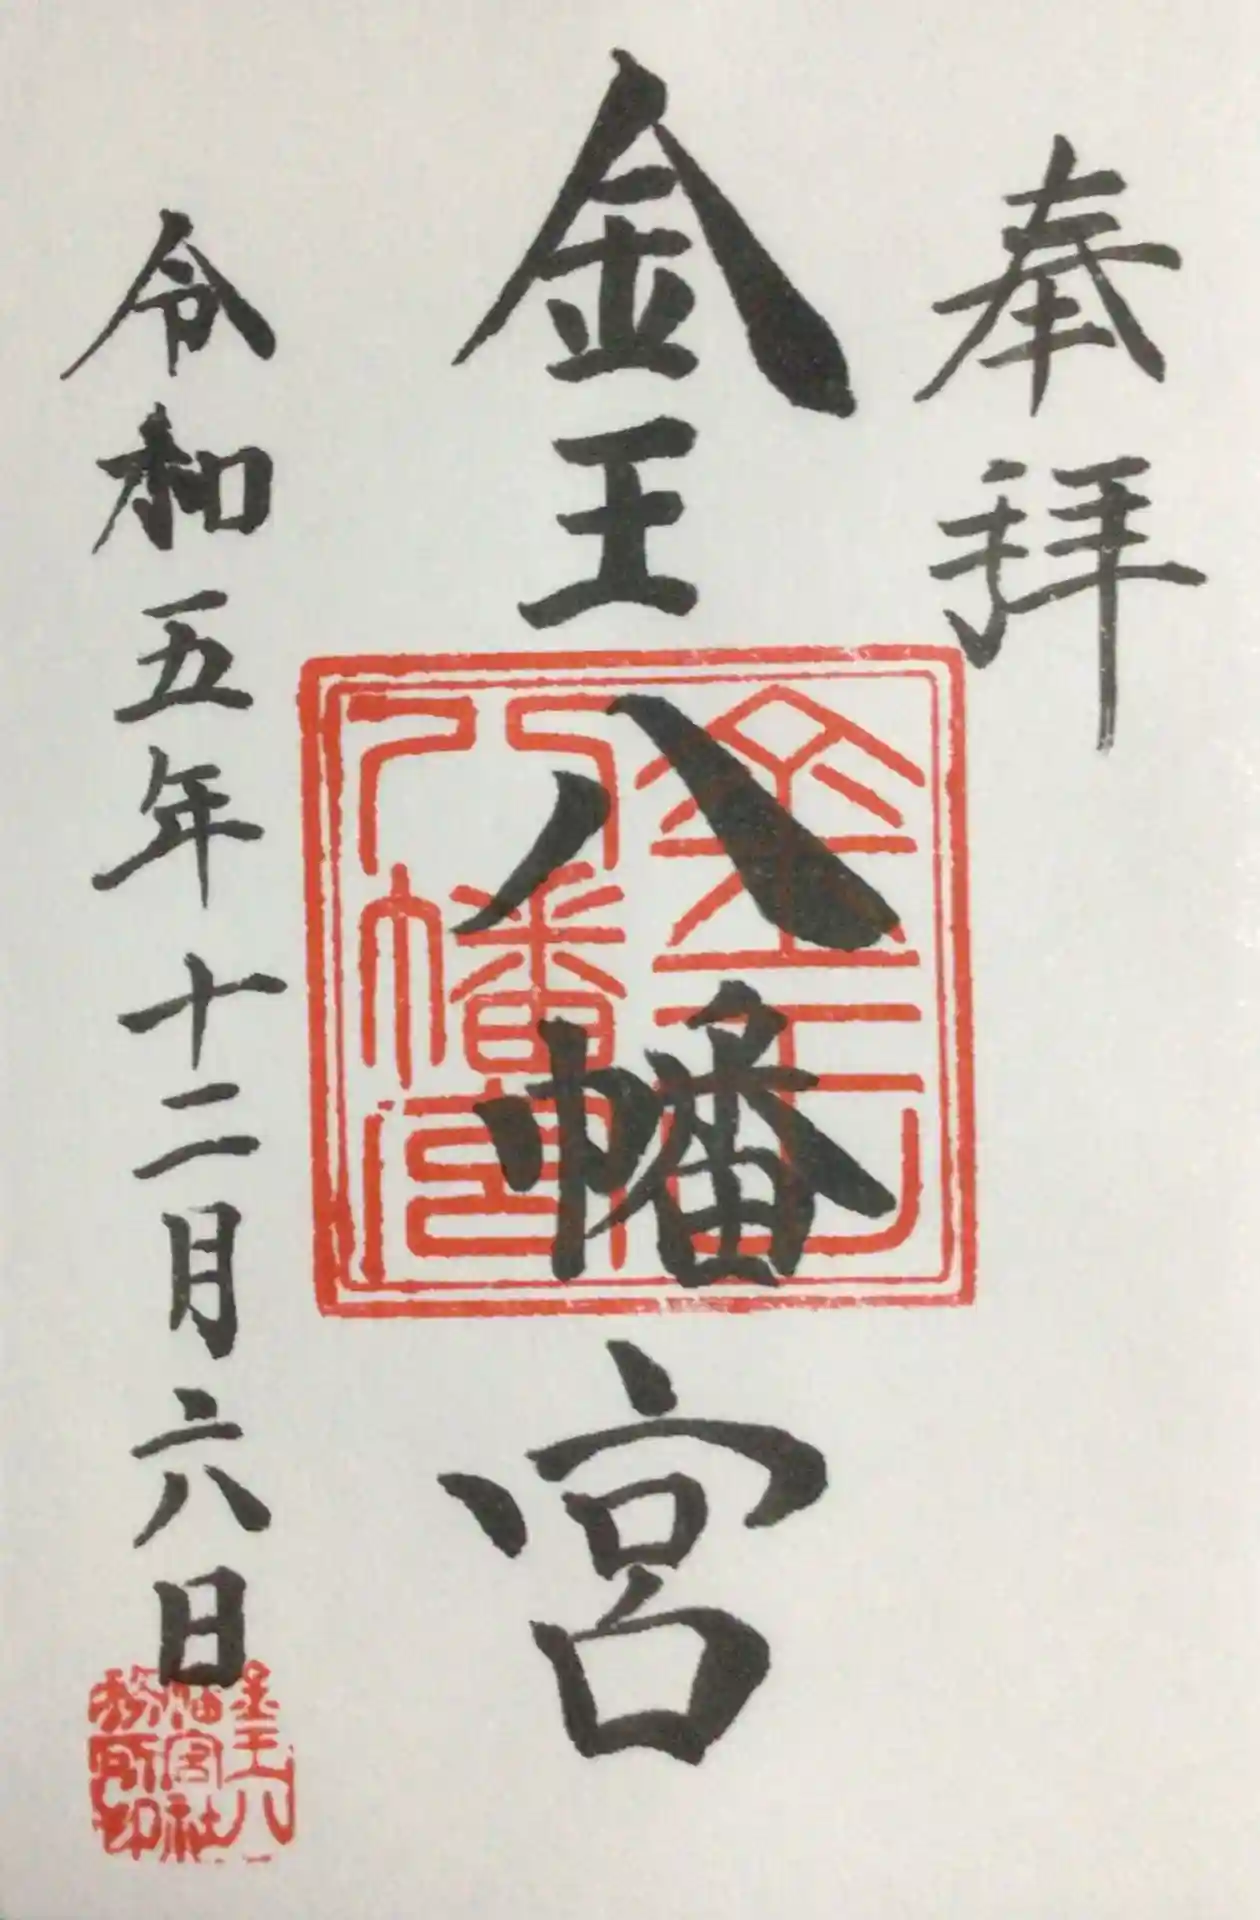 奉拝
金王八幡宮
令和五年十二月六日
金王八幡宮
金王八幡宮社務所印